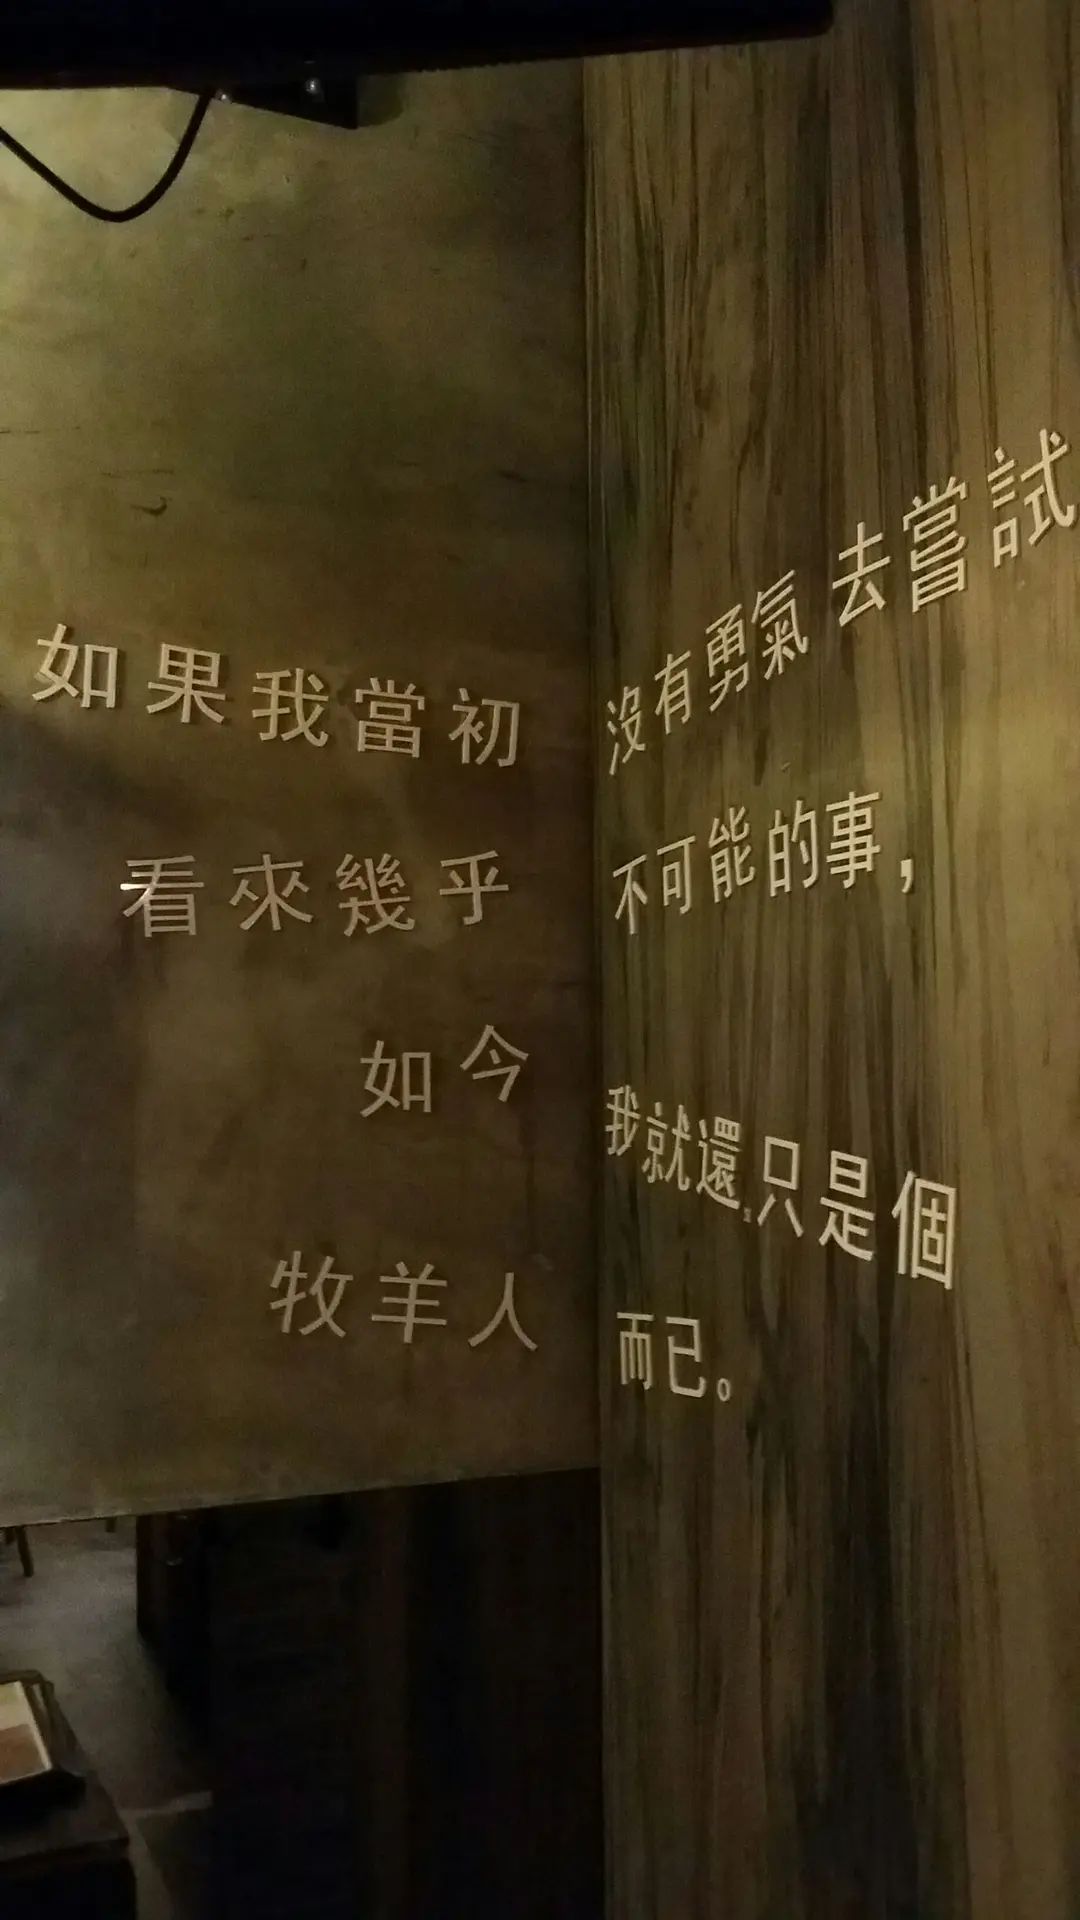 如果我當初沒有勇氣去嘗試
看來幾乎不可能的事，
如今我就還只是個
牧羊人而已。